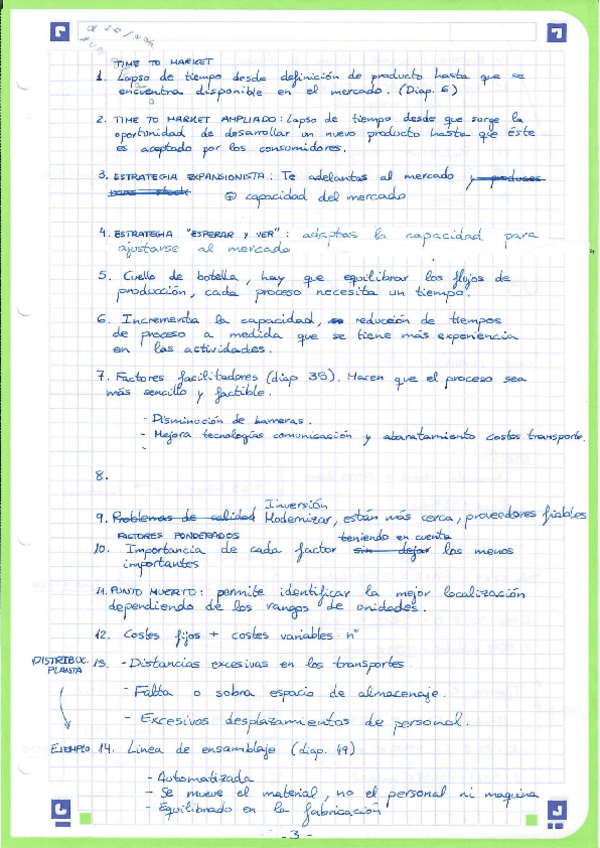 TIME TO MARKET
1. Lapso de tiempo desde definición de producto hasta que se
encuentra disponible en el mercado. (Diap. 6)
2. TIME TO MARKET AMPLIADO: Lapso de tiempo desde que surge la
oportunidad de desarrollar un nuevo producto hasta que éste
es aceptado por los consumidores.
3. ESTRATEGIA EXPANSIONISTA: Te adelantas al mercado y produces
⊕ capacidad del mercado
4. ESTRATEGIA "ESPERAR Y VER": adaptas la capacidad para
ajustarse al mercado
5. Cuello de botella, hay que equilibrar los flujos de
producción, cada proceso necesita un tiempo.
6. Incrementa la capacidad, reducción de tiempos
de proceso a medida que se tiene más experiencia
en las actividades.
7. Factores facilitadores (diap 38). Hacen que el proceso sea
más sencillo y factible.
- Disminución de barreras.
- Mejora tecnologías comunicación y abaratamiento costes transporte.
-
8.
Inversión
9. Problemas de calidad Modernizar, están más cerca, proveedores fiables
FACTORES PONDERADOS teniendo en cuenta
10. Importancia de cada factor sin dejar los menos
importantes
11. PUNTO MUERTO: permite identificar la mejor localización
dependiendo de los rangos de unidades.
12. Costes fijos + costes variables · nº
DISTRIBUC. 13. - Distancias excesivas en los transportes.
PLANTA
- Falta o sobra espacio de almacenaje.
- Excesivos desplazamientos de personal.
EJEMPLO 14. Linea de ensamblaje (diap. 49)
- Automatizada
- Se mueve el material, no el personal ni maquina
- Equilibrado en la fabricación
- 3 -